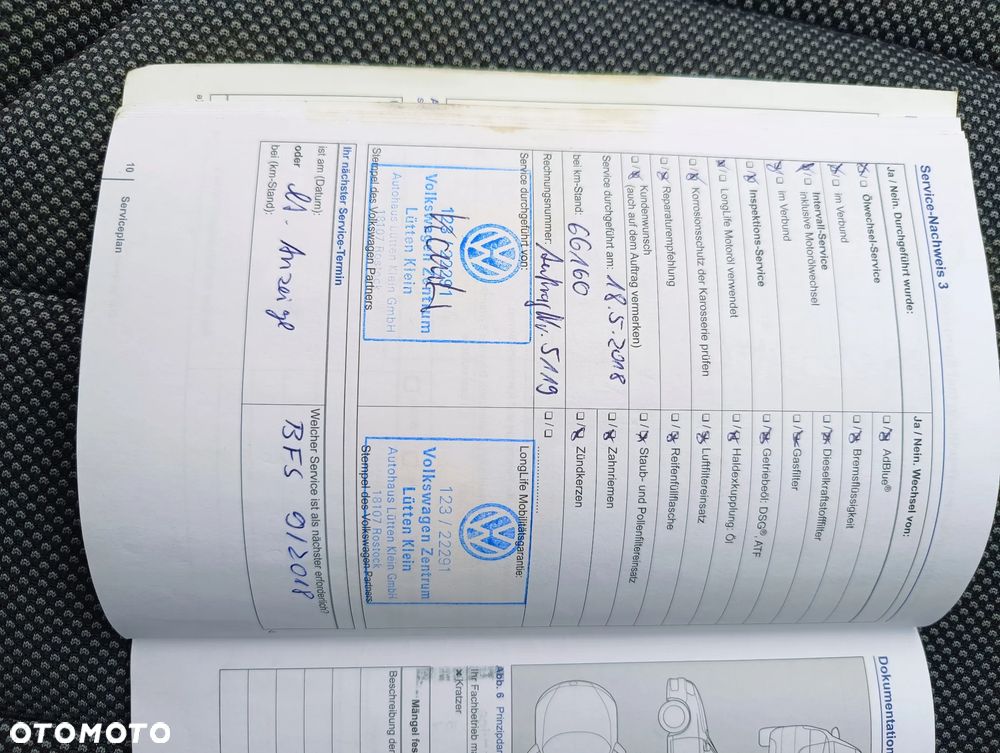 Service-Nachweis 3
Ja / Nein. Durchgeführt wurde:
☒/☐ Ölwechsel-Service
☒/☐ im Verbund
☒/☐ Intervall-Service
inklusive Motorölwechsel
☒/☐ im Verbund
☐/☒ Inspektions-Service
☒/☐ LongLife Motoröl verwendet
☐/☒ Korrosionsschutz der Karosserie prüfen
☐/☒ Reparaturempfehlung
☐/☒ Kundenwunsch
(auch auf dem Auftrag vermerken)
Service durchgeführt am: 18.5.2018
bei km-Stand: 66160
Rechnungsnummer: Auftrag Nr. 5119
Service durchgeführt von:
123/22291
Volkswagen Zentrum
Lütten Klein
Autohaus Lütten Klein GmbH
18107 Rostock
Stempel des Volkswagen Partners
Ja / Nein. Wechsel von:
☐/☒ AdBlue®
☐/☒ Bremsflüssigkeit
☐/☒ Dieselkraftstofffilter
☐/☒ Gasfilter
☐/☒ Getriebeöl: DSG®, ATF
☐/☒ Haldexkupplung: Öl
☐/☒ Luftfiltereinsatz
☐/☒ Reifenfüllflasche
☐/☒ Staub- und Pollenfiltereinsatz
☐/☒ Zahnriemen
☐/☒ Zündkerzen
☐/☐
LongLife Mobilitätsgarantie:
123/22291
Volkswagen Zentrum
Lütten Klein
Autohaus Lütten Klein GmbH
18107 Rostock
Stempel des Volkswagen Partners
Ihr nächster Service-Termin
ist am (Datum):
oder lt. Anzeige
bei (km-Stand):
Welcher Service ist als nächster erforderlich?
BFS 9/2018
10 Serviceplan
Dokumentation
Abb. 6 Prinzipdar
Ihr Fachbetrieb m
Kratzer
Mängel fes
Beschreibung der
OTOMOTO